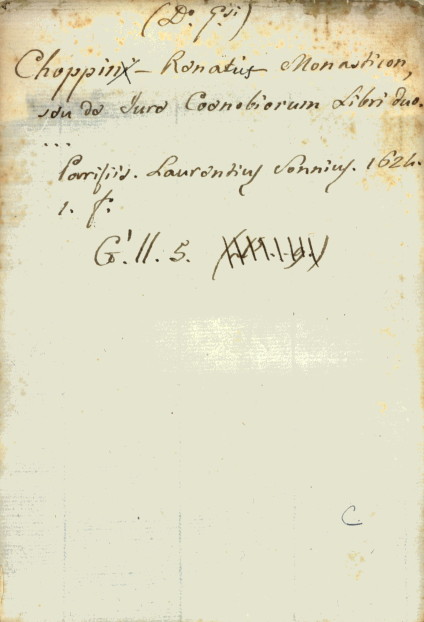 (Do. Gsi)
Choppin – Renatus Monasticon,
seu de Jure Coenobiorum Libri duo.
...
Parisiis. Laurentius Sonnius. 1624.
1. f.
G'. II. 5.
C